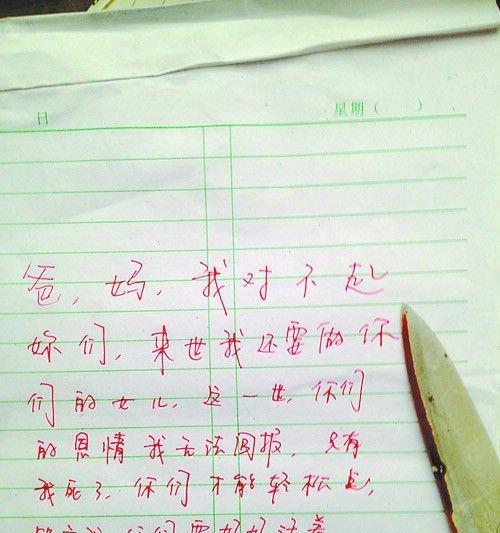 日 星期（ ）
爸，妈，我对不起
妳们，来世我还要做你
们的女儿，这一世，你们
的恩情我无法回报，只有
我死了，你们才能轻松点，
你们要好好活着